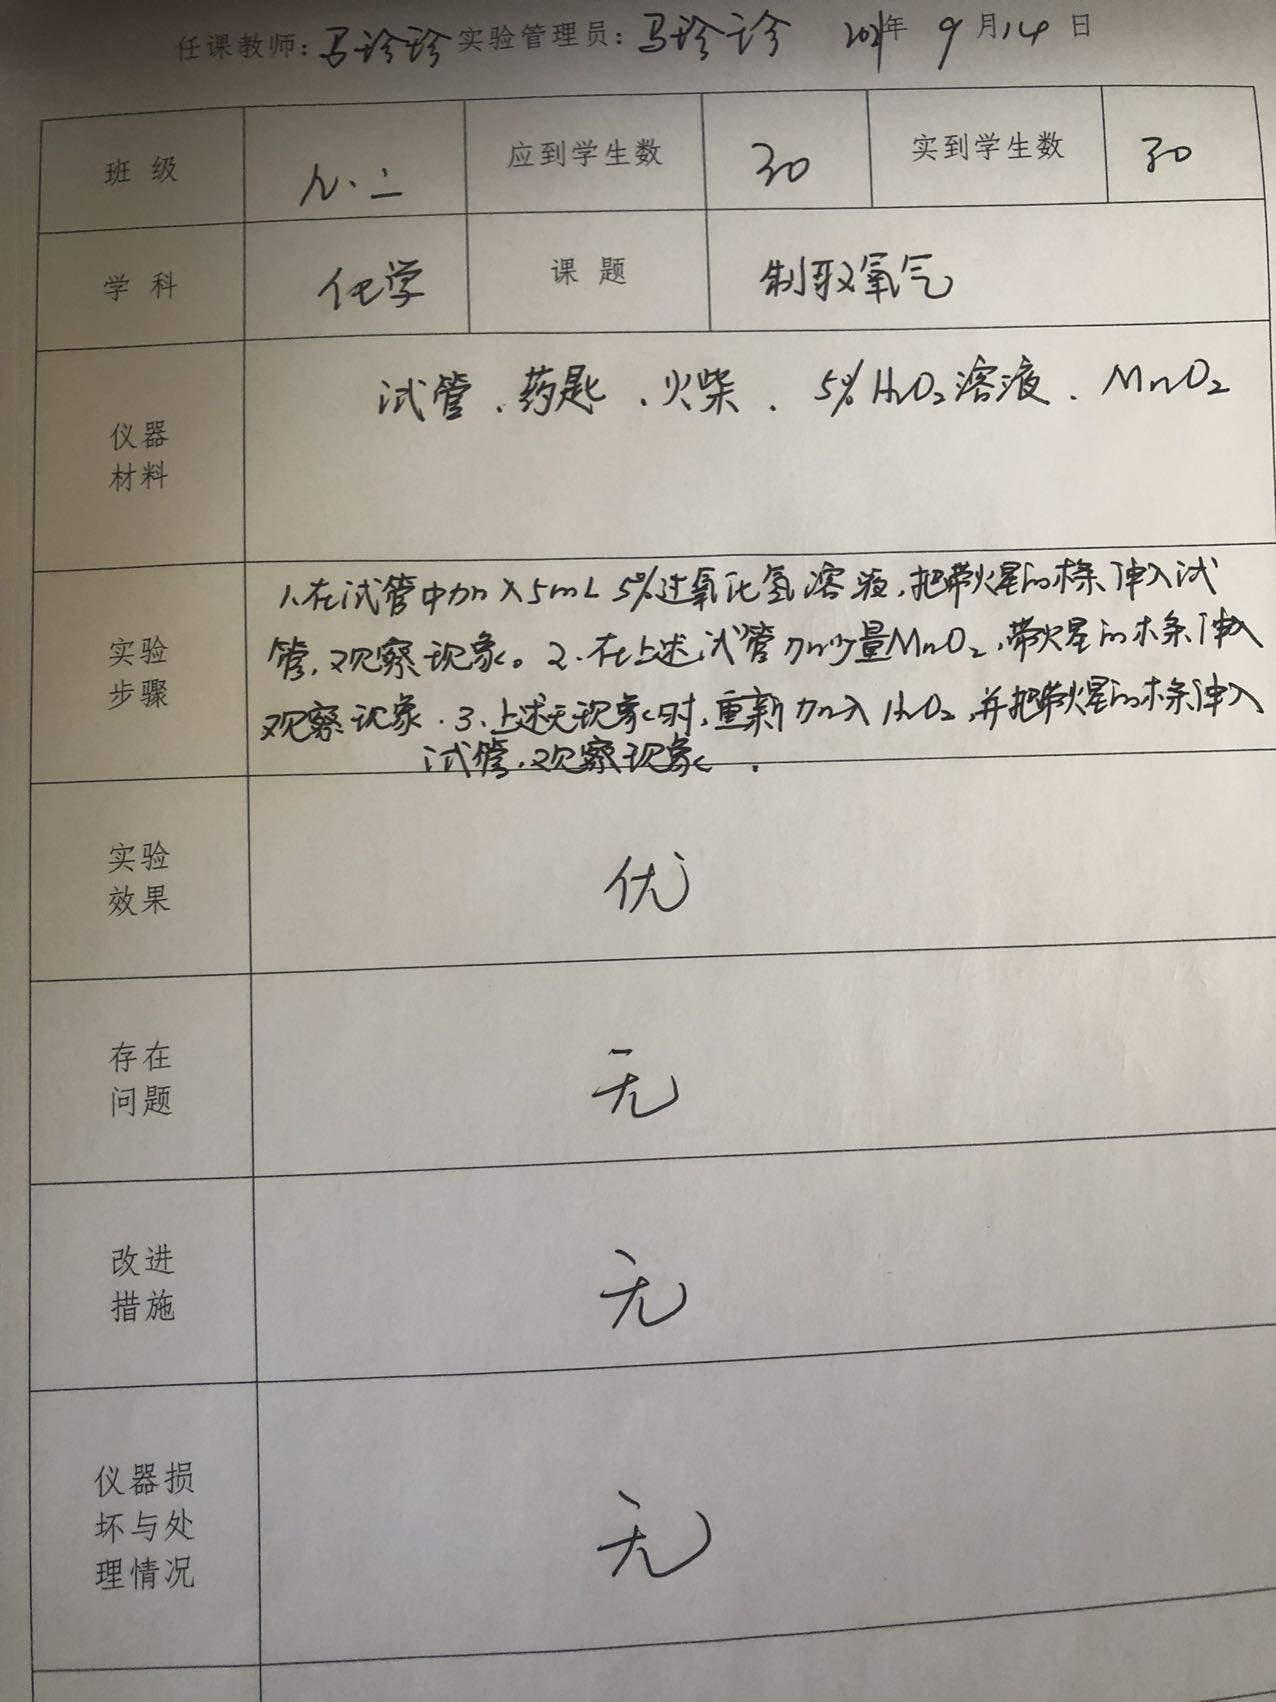 任课教师:马珍珍 实验管理员:马珍珍 2021年 9月14日
班 级 八·二 应到学生数 30 实到学生数 30
学 科 化学 课 题 制取氧气
仪器
材料
试管、药匙、火柴、5% H₂O₂溶液、MnO₂
实验
步骤
1.在试管中加入5mL 5%过氧化氢溶液,把带火星的木条伸入试
管,观察现象。2.在上述试管加少量MnO₂,带火星的木条伸入
观察现象.3.上述无现象时,重新加入H₂O₂,并把带火星的木条伸入
试管,观察现象.
实验
效果
优
存在
问题
无
改进
措施
无
仪器损
坏与处
理情况
无